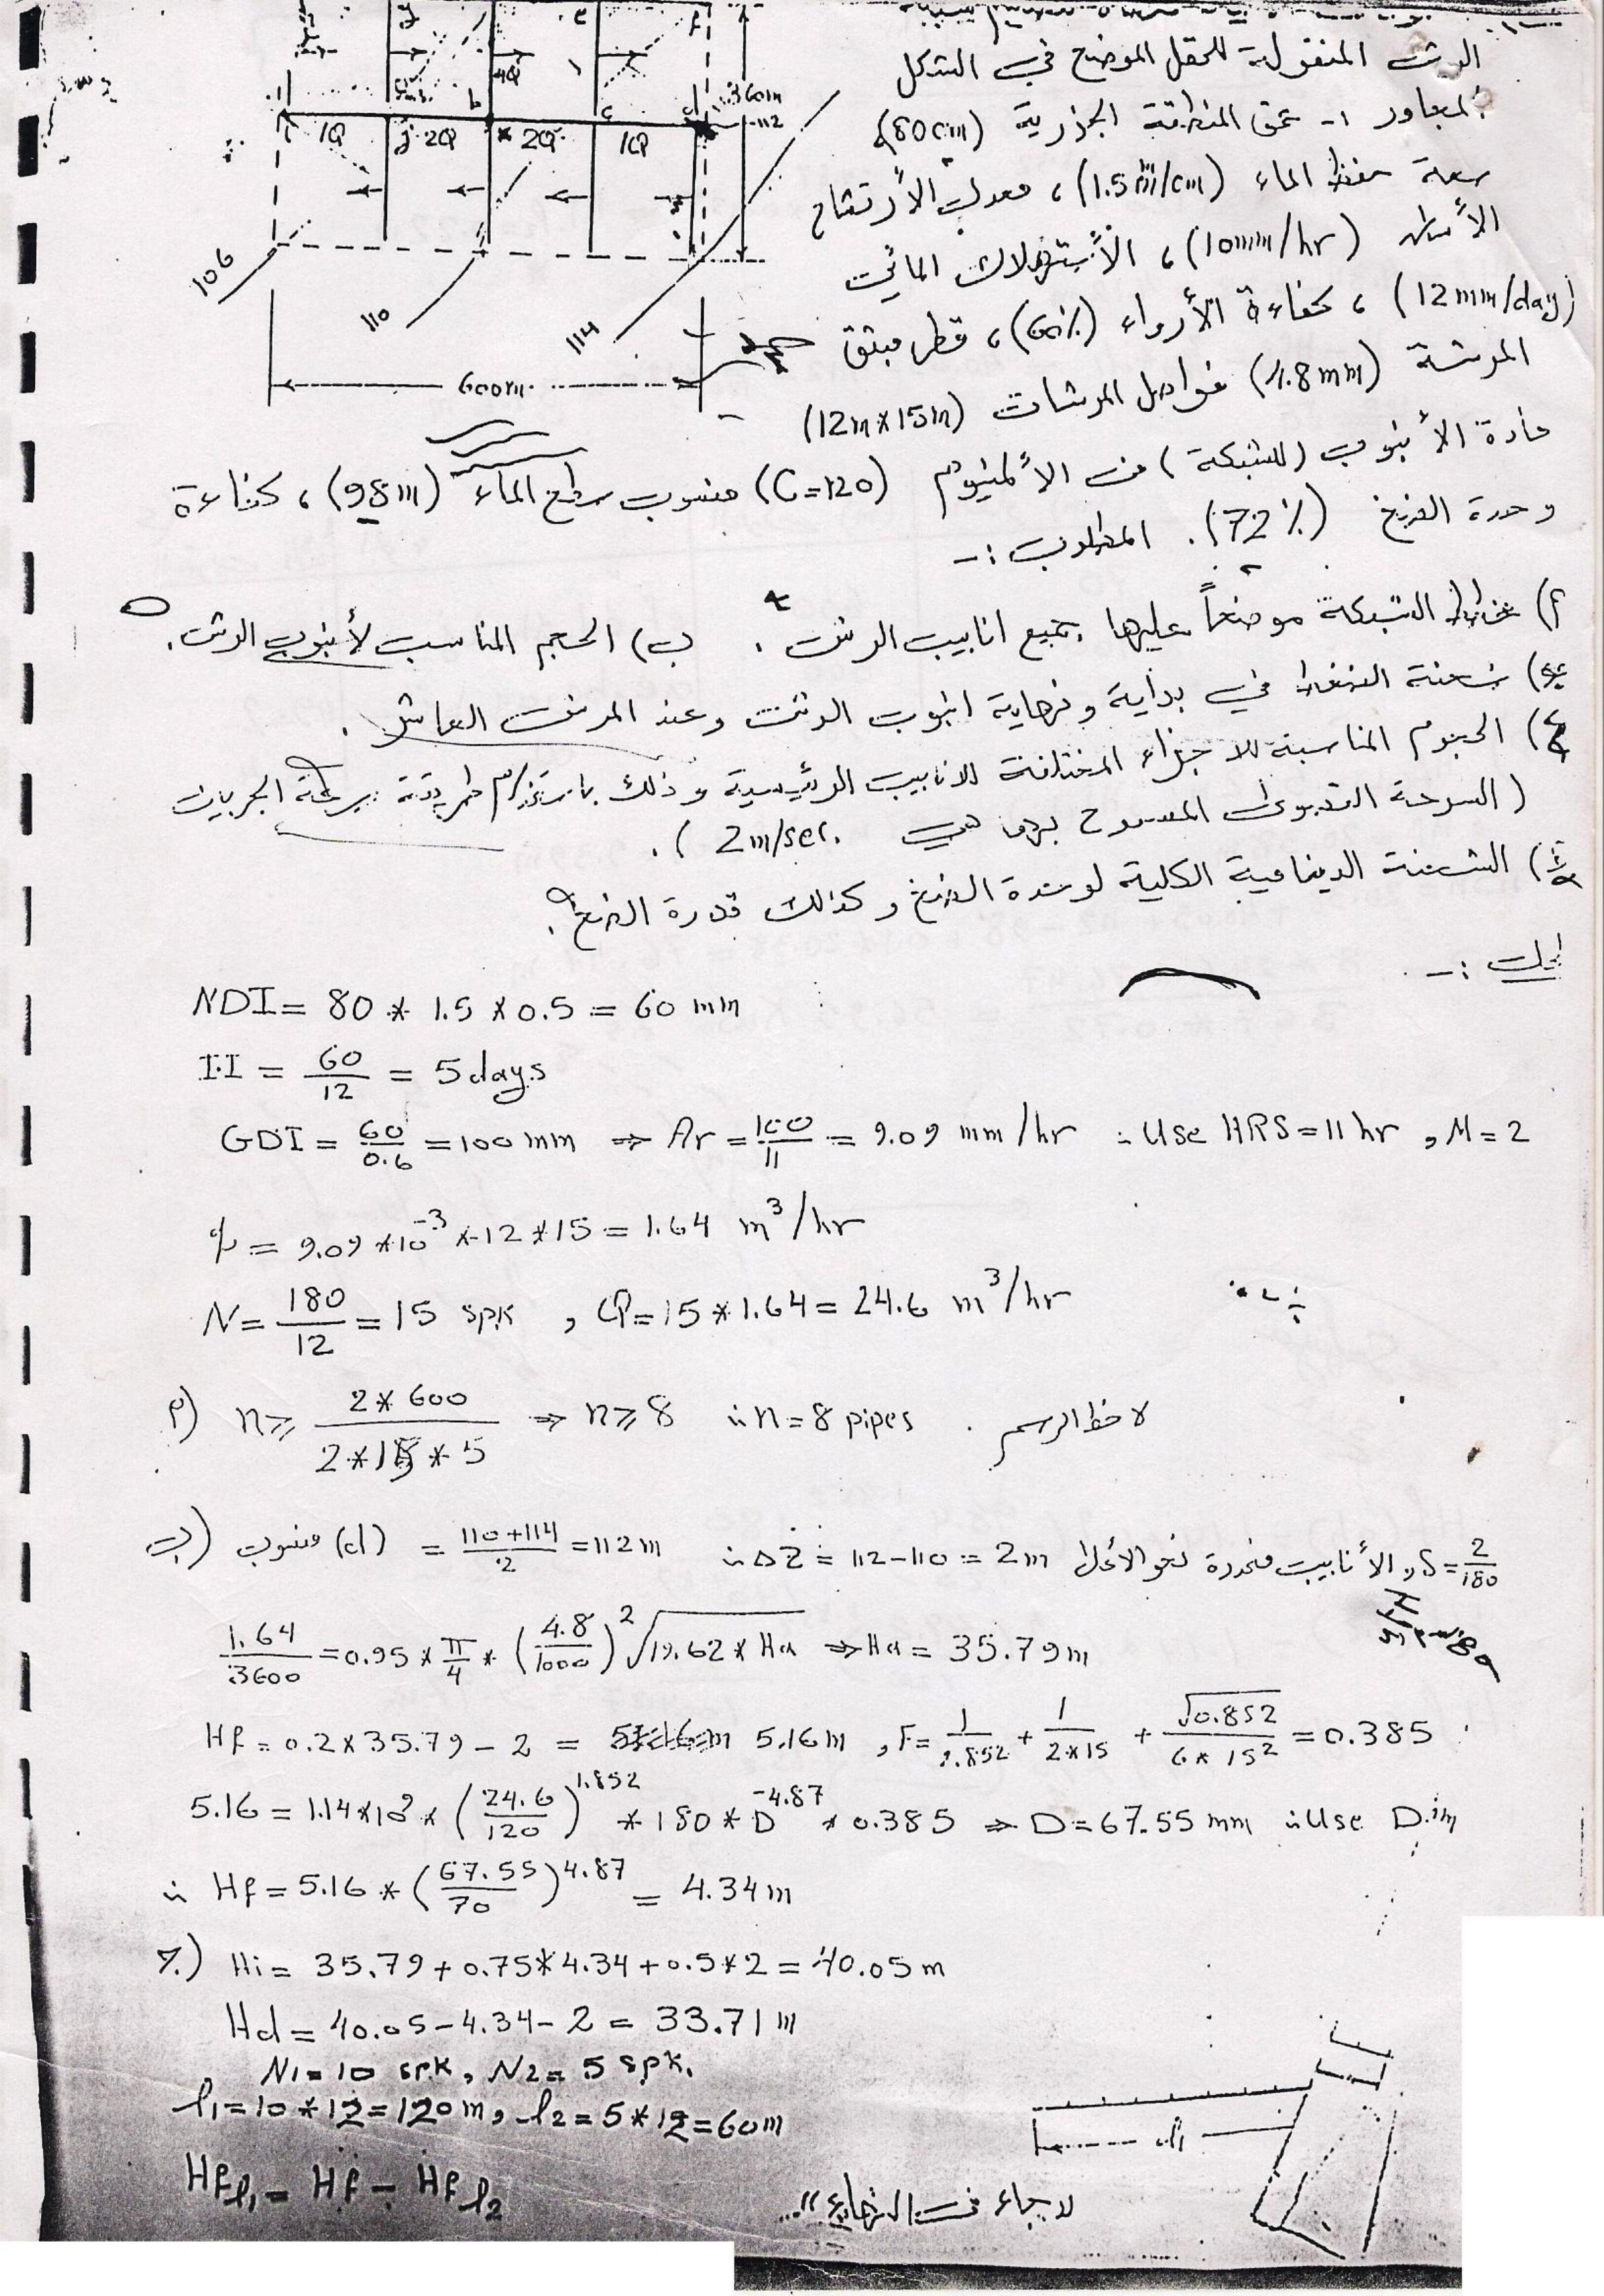 الرش المنقولة للحقل الموضح في الشكل
المجاور ١- عمق المنطقة الجذرية (80cm)
سعة حفظ الماء (1.5mm/cm)، معدل الأرتشاح
الأساس (10mm/hr)، الأستهلاك المائي
(12mm/day)، كفاءة الأرواء (60%)، قطر مبثق
المرشة (4.8mm) فواصل المرشات (12m*15m)
مادة الأنبوب (للشبكة) من الألمنيوم (C=120) منسوب سطح الماء (98m)، كفاءة
وحدة الضخ (72%). المطلوب :-
أ) مخطط الشبكة موضحاً عليها جميع انابيب الرش. ب) الحجم المناسب لأنبوب الرش.
ج) شحنة الضغط في بداية ونهاية انبوب الرش وعند المرش العاشر.
ع) الحجوم المناسبة للاجزاء المختلفة للانابيب الرئيسية وذلك باستخدام طريقة سرعة الجريان
(السرعة القصوى المسموح بها هي 2m/sec.).
الشحنة الدينامية الكلية لوحدة الضخ وكذلك قدرة الضخ؟
الحل :-
NDI = 80 * 1.5 * 0.5 = 60 mm
II = 60/12 = 5 days
GDI = 60/0.6 = 100 mm ⇒ Ar = 100/11 = 9.09 mm/hr ∴ Use HRS = 11 hr , M = 2
q = 9.09 * 10^-3 * 12 * 15 = 1.64 m^3/hr
N = 180/12 = 15 spk , Q = 15 * 1.64 = 24.6 m^3/hr
أ) n ≥ 2*600 / 2*15*5 ⇒ n ≥ 8 ∴ n = 8 pipes . لاحظ الرسم
ب) منسوب (d) = 110+114/2 = 112 m ∴ ΔZ = 112-110 = 2m الأنابيب منحدرة نحو الأعلى و S = 2/180
1.64/3600 = 0.95 * π/4 * (4.8/1000)^2 √19.62 * Ha ⇒ Ha = 35.79 m
Hf = 0.2 x 35.79 - 2 = 5.16 m , F = 1/2.852 + 1/2*15 + √0.852/6*15^2 = 0.385
5.16 = 1.14*10^9 * (24.6/120)^1.852 * 180 * D^-4.87 * 0.385 ⇒ D = 67.55 mm ∴ Use
∴ Hf = 5.16 * (67.55/70)^4.87 = 4.34 m
Hi = 35.79 + 0.75*4.34 + 0.5*2 = 40.05 m
Hd = 40.05 - 4.34 - 2 = 33.71 m
N1 = 10 spk, N2 = 5 spk.
l1 = 10 * 12 = 120 m, l2 = 5 * 12 = 60m
Hf l1 = Hf - Hf l2
1Q
2Q
2Q
1Q
4Q
360m
112
106
110
114
600m